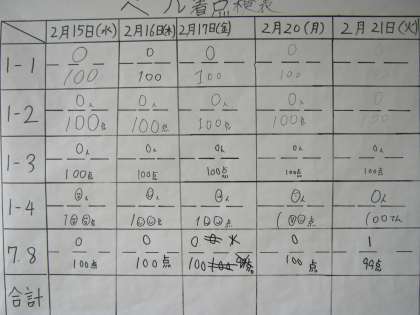 ベル着点検表
2月15日(水) 2月16日(木) 2月17日(金) 2月20(月) 2月21日(火)
1-1 0 0 0 0 0
100 100 100 100 100
1-2 0人 0人 0人 0人 0
100点 100点 100点 100点 100
1-3 0人 0人 0人 0人 0人
100点 100点 100点 100点 100点
1-4 0人 0人 0人 0人 0人
100点 100点 100点 100点 100てん
7.8 0 0 0 0 1
100点 100点 100 点 100点 99点
合計